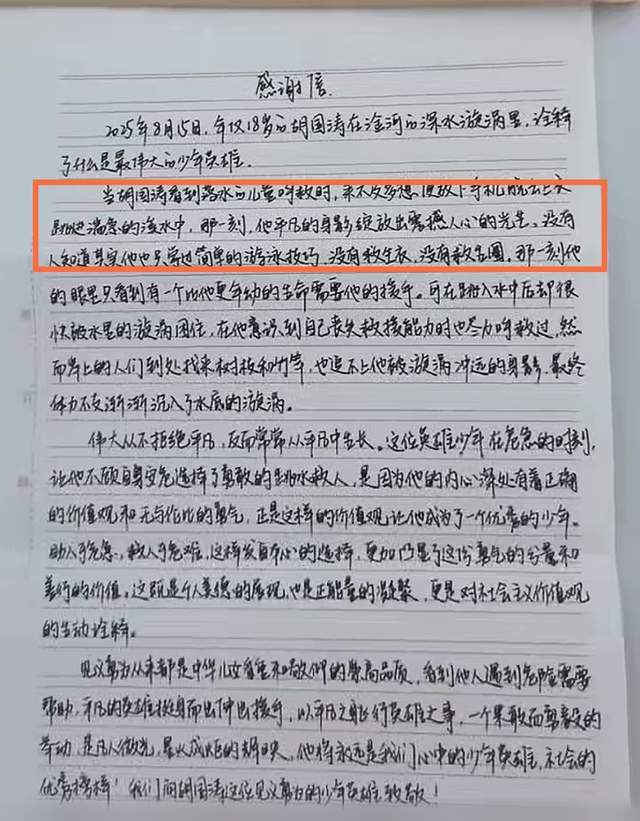 感谢信
2025年8月15日，年仅18岁的胡国涛在淦河的深水漩涡里，诠释
了什么是最伟大的少年英雄。
当胡国涛看到落水的儿童呼救时，来不及多想便放下手机脱去上衣
跳进湍急的淦水中，那一刻，他平凡的身影绽放出震撼人心的光芒。没有
人知道其实他也只学过简单的游泳技巧，没有救生衣，没有救生圈，那一刻他
的眼里只看到有一个比他更年幼的生命需要他的援手。可在跳入水中后却很
快被水里的漩涡困住，在他意识到自己丧失救援能力时也尽力呼救过，然
而岸上的人们到处找来树枝和竹竿，也追不上他被漩涡冲远的身影，最终
体力不支渐渐沉入了水底的漩涡。
伟大从不拒绝平凡，反而常常从平凡中生长。这位英雄少年在危急的时刻，
让他不顾自身安危选择了勇敢的跳水救人，是因为他的内心深处有着正确
的价值观和无与伦比的勇气，正是这样的价值观让他成为了一个优秀的少年。
助人于危急，救人于危难，这样发自本心的选择，更加凸显了这份勇气的分量和
善行的价值。这既是个人美德的展现，也是正能量的凝聚，更是对社会主义价值观
的生动诠释。
见义勇为从来都是中华儿女看重和敬仰的崇高品质，看到他人遇到危险需要
帮助，平凡的英雄挺身而出伸出援手，以平凡之躯行英雄之事，一个果敢而勇毅的
举动，是凡人微光，星火成炬的辉映。他将永远是我们心中的少年英雄，社会的
优秀榜样！我们向胡国涛这位见义勇为的少年英雄致敬！